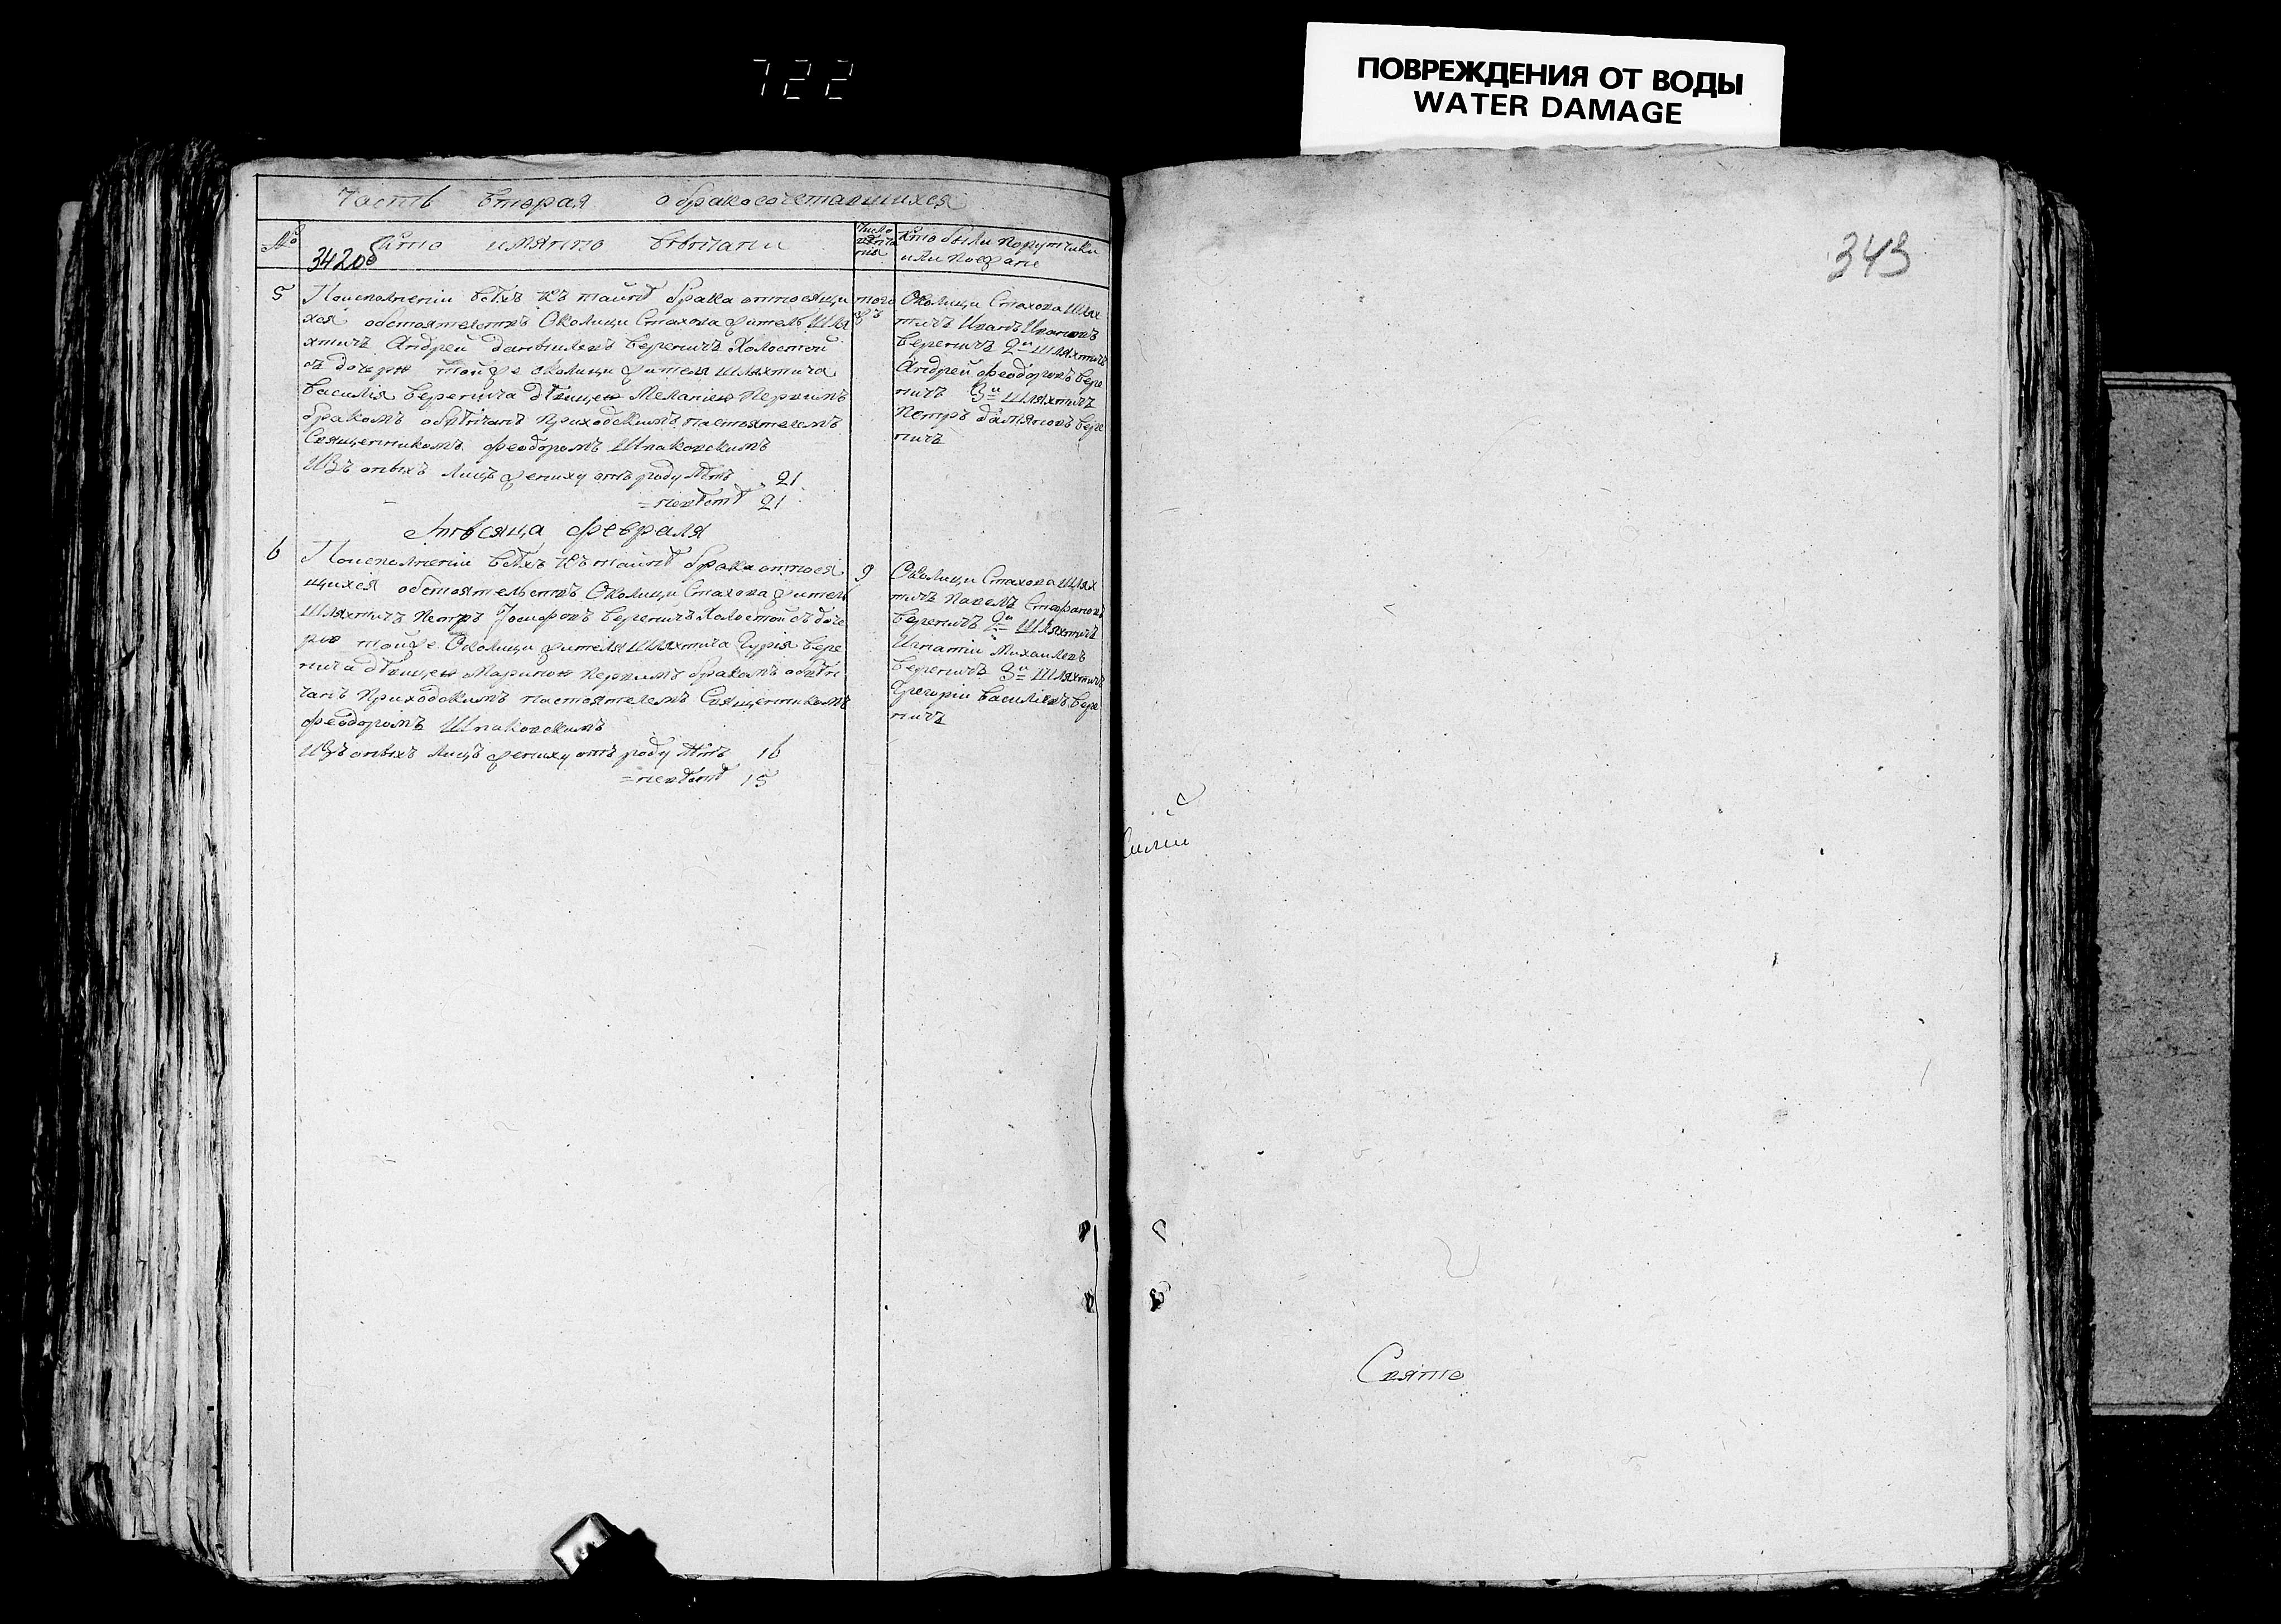 722
ПОВРЕЖДЕНИЯ ОТ ВОДЫ
WATER DAMAGE
Часть вторая обракосочетавшихся
№ Кто имянно вѣнчаны
342об
Число вѣнчанія
Кто были поручники
или поезжане
5 Поисполненіи всѣхъ къ тайнѣ брака относящи
хся обстоятелствъ Околицы Стахова житель Шля
хтичъ Андрей Даніиловъ Вереничъ Холостой
съ дочерю тойже околицы жителя шляхтича
Василія Веренича дѣвицею Меланіею Первымъ
бракомъ обвѣнчанъ Приходскимъ настоятелемъ
Священникомъ Феодоромъ Шпаковскимъ
Изъ оныхъ лицъ жениху отъ роду лѣтъ 21
= невѣстѣ 21
того
жъ
Околицы Стахова Шлях
тичъ Иванъ Ивановъ
Вереничъ 2й Шляхтичъ
Андрей Феодоровъ Вере
ничъ 3й Шляхтичъ
Петръ Дамяновъ Вере
ничъ
Мѣсяца Февраля
6 Поисполненіи всѣхъ къ тайнѣ брака относя
щихся обстоятельствъ Околицы Стахова жител
Шляхтичъ Петръ Іосифовъ Вереничъ Холостой съ доче
рю тойже Околицы жителя Шляхтича Гурія Вере
нича дѣвицею Мариною Первымъ бракомъ обвѣн
чанъ Приходскимъ настоятелемъ Священникомъ
Феодоромъ Шпаковскимъ
Изъ оныхъ лицъ жениху отъ роду лѣтъ 16
= невѣстѣ 15
9
Околицы Стахова Шлях
тичъ Павелъ Стефановъ
Вереничъ 2й Шляхтичъ
Игнатій Михаиловъ
Вереничъ 3й Шляхтичъ
Григорій Василіевъ Вере
ничъ
343
Свято